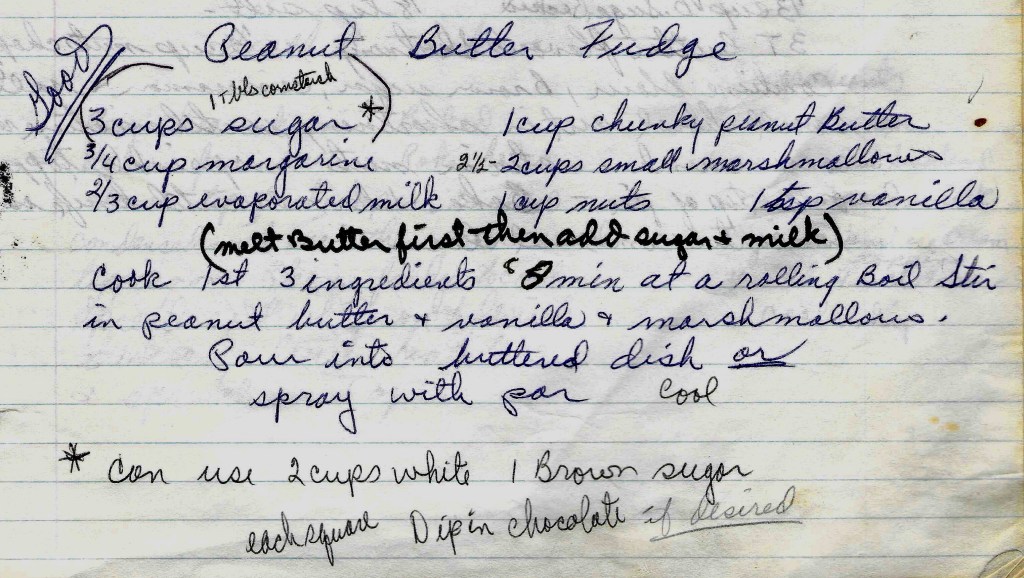 Good
Peanut Butter Fudge
1 Tbls cornstarch
3 cups sugar * 1 cup chunky peanut Butter
3/4 cup margarine 2 1/2 - 2 cups small marshmallows
2/3 cup evaporated milk 1 cup nuts 1 tsp vanilla
(melt Butter first then add sugar + milk)
Cook 1st 3 ingredients min at a rolling Boil Stir
in peanut butter + vanilla + marshmallows.
Pour into buttered dish or
spray with pam Cool
* Can use 2 cups white 1 Brown sugar
each square Dip in chocolate if desired